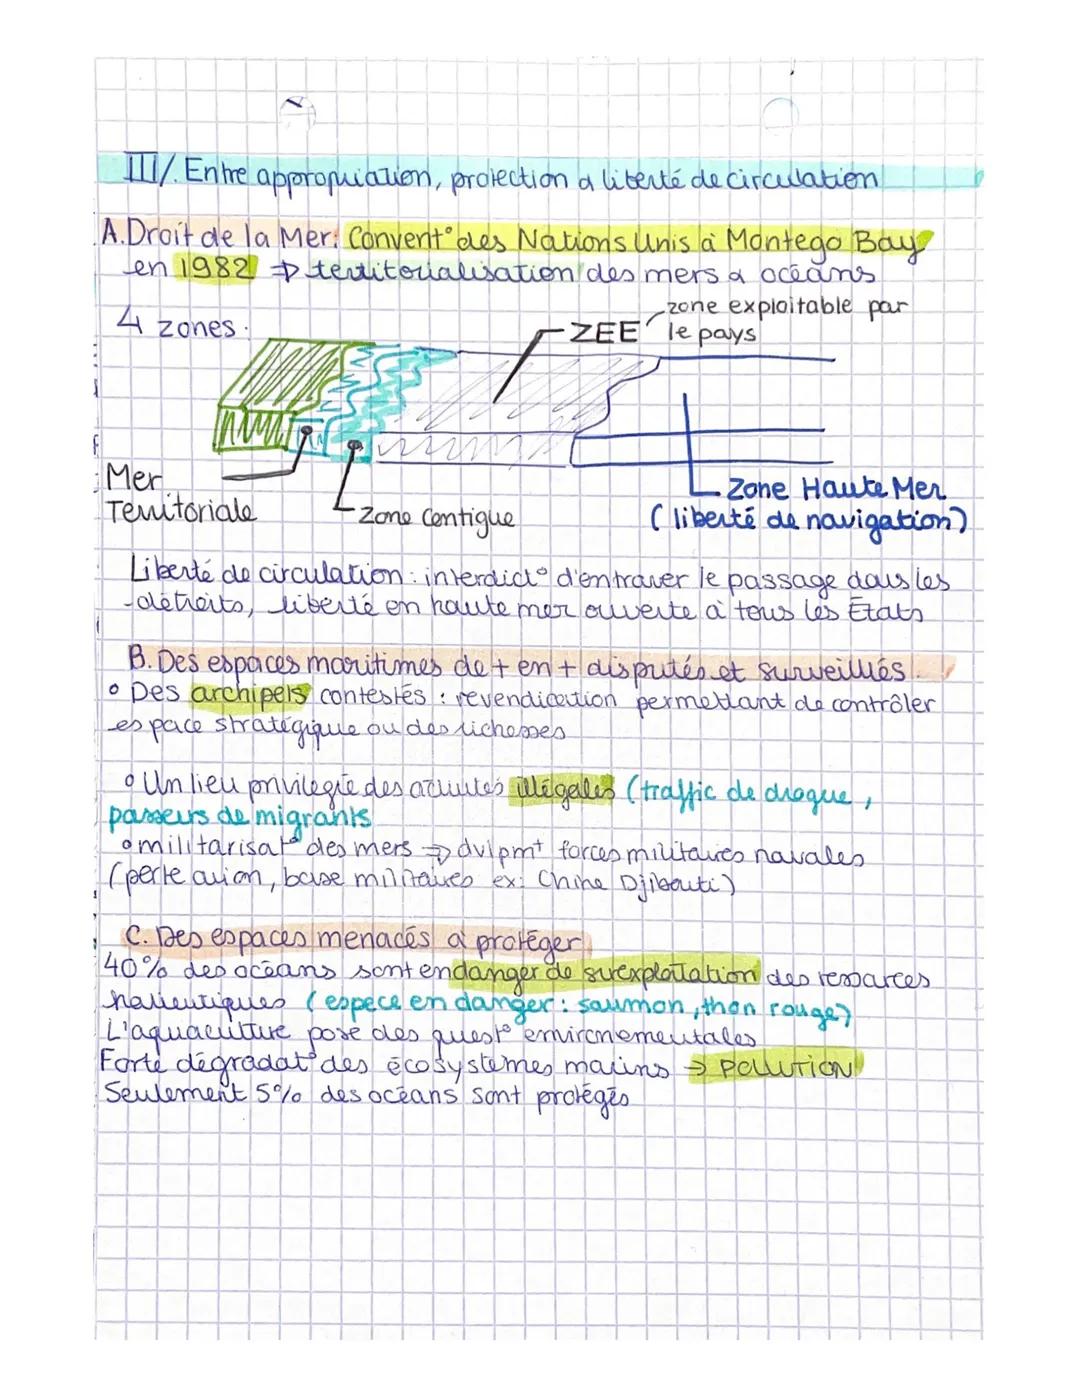 III/. Entre appropriation, protection & liberté de circulation
A. Droit de la Mer: Convent° des Nations Unis à Montego Bay
en 1982 => territorialisation des mers & océans
zone exploitable par
4 zones :
ZEE
le pays
Mer
Territoriale
Zone Contigue
Zone Haute Mer
(liberté de navigation)
Liberté de circulation : interdict° d'entraver le passage dans les
détroits, liberté en haute mer ouverte à tous les États
B. Des espaces maritimes de + en + disputés et surveillés.
° Des archipels contestés : revendication permettant de contrôler
espace stratégique ou des richesses
° Un lieu privilegié des activités illégales (traffic de drogue,
passeurs de migrants
° militarisat° des mers => dvlpmt forces militaires navales
(porte avion, base militaires ex: Chine Djibouti)
C. Des espaces menacés à protéger
40% des océans sont en danger de surexploitation des ressources
halieutiques (espece en danger : saumon, thon rouge)
L'aquaculture pose des quest° environnementales
Forte dégradat° des écosystèmes marins → POLLUTION
Seulement 5% des océans sont protégés